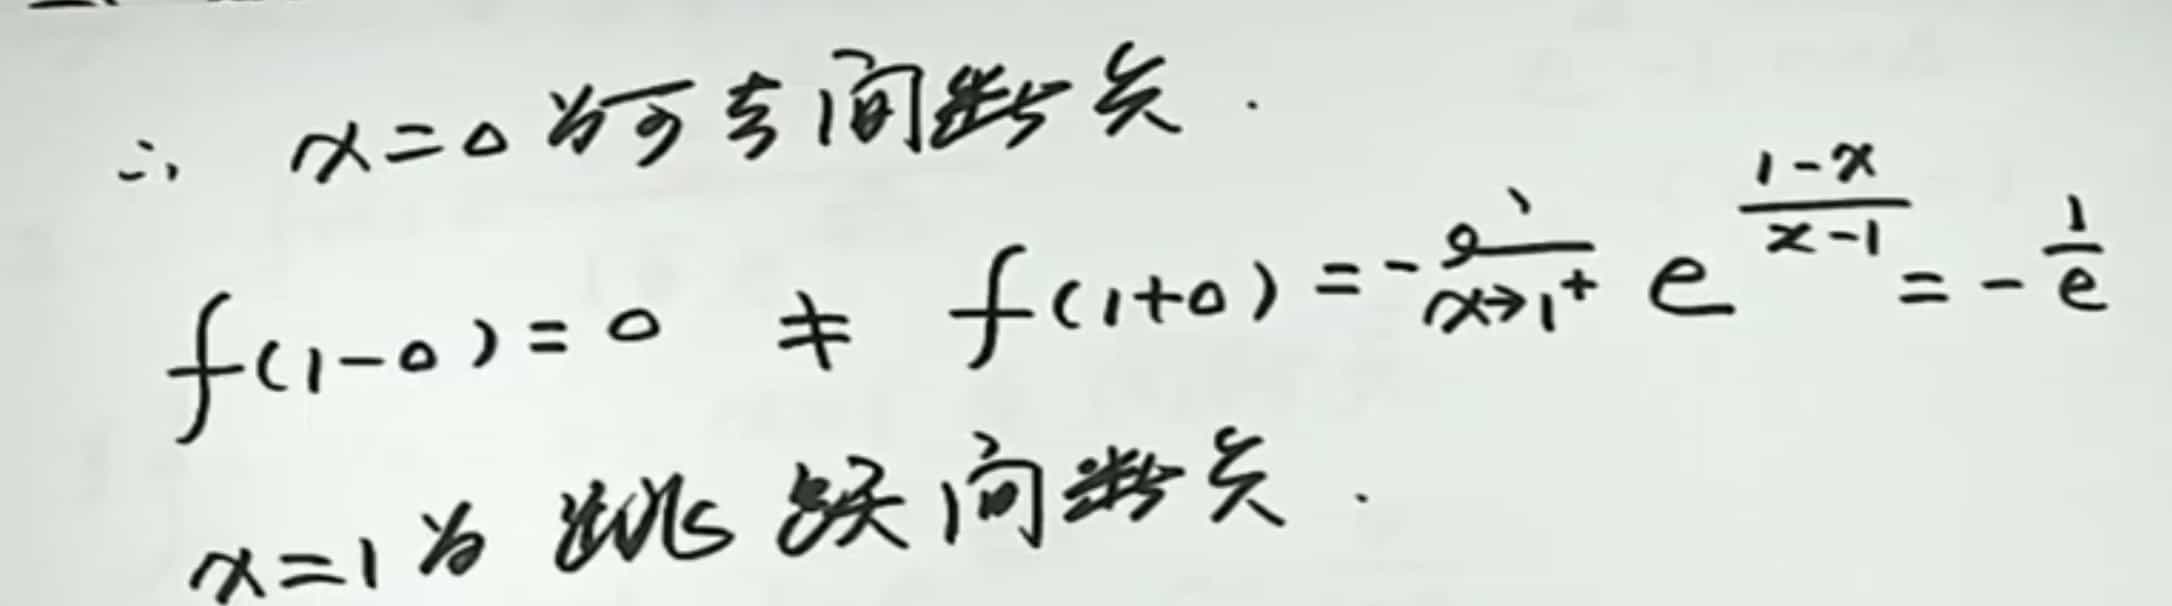 ∴ x=0 为可去间断点.
f(1-0)=0 ≠ f(1+0)=-lim_{x→1⁺} e^{\frac{1-x}{x-1}}=-\frac{1}{e}
x=1为 跳跃间断点.